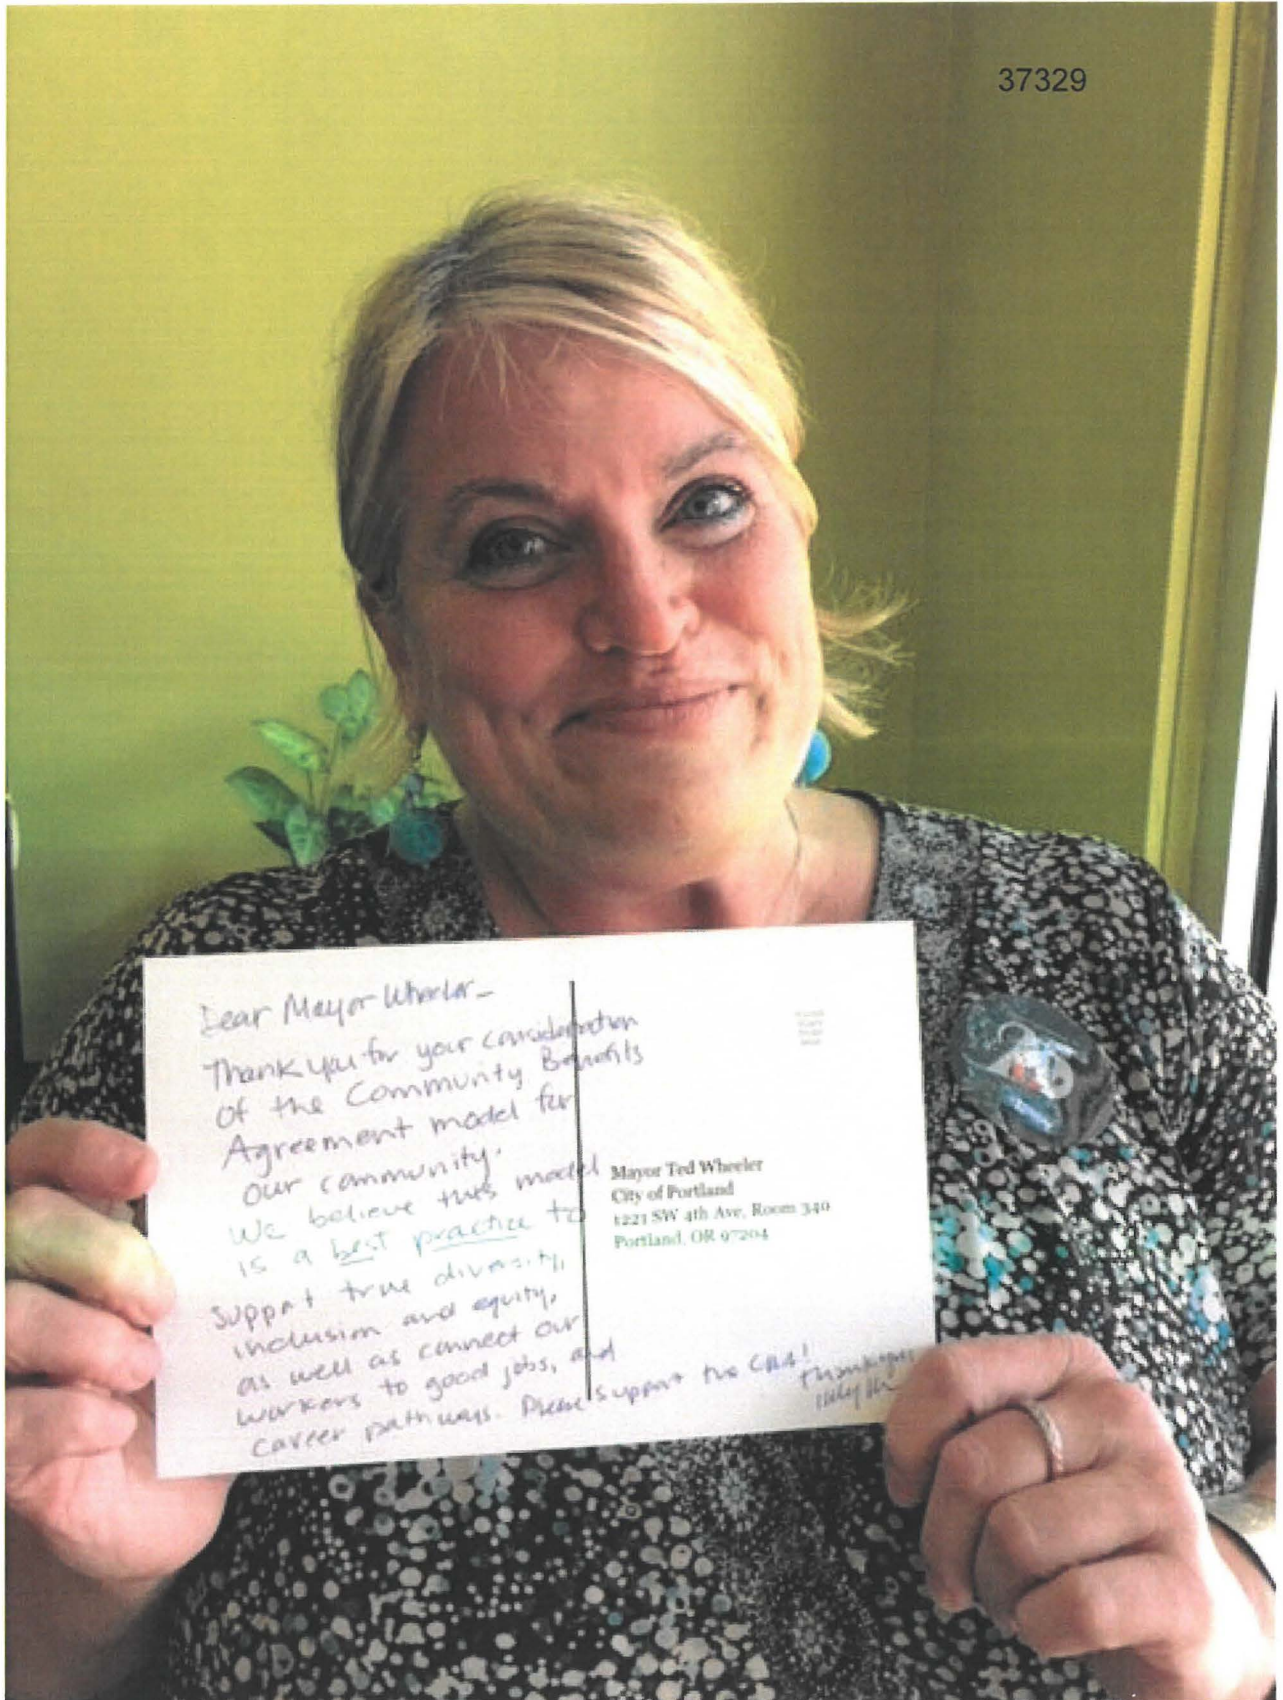 37329
Dear Mayor Wheeler-
Thank you for your consideration
of the Community Benefits
Agreement model for
our community.
We believe this model
is a best practice to
support true diversity,
inclusion and equity,
as well as connect our
workers to good jobs, and
career pathways. Please support the CBA!
Thank you
Mayor Ted Wheeler
City of Portland
1221 SW 4th Ave, Room 340
Portland, OR 97204